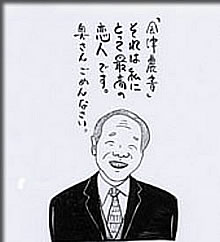 「会津農書」
それは私に
とって最高の
恋人です。
奥さんごめんなさい。